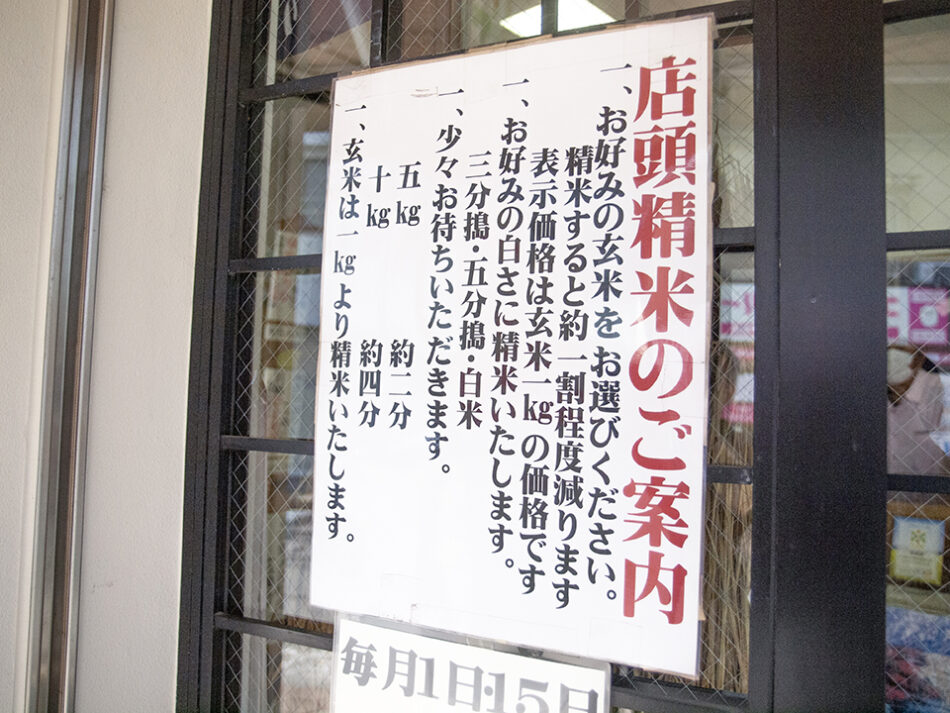 店頭精米のご案内
一、お好みの玄米をお選びください。
精米すると約一割程度減ります
表示価格は玄米一kgの価格です
一、お好みの白さに精米いたします。
三分搗・五分搗・白米
一、少々お待ちいただきます。
五kg 約二分
十kg 約四分
一、玄米は一kgより精米いたします。
毎月1日・15日